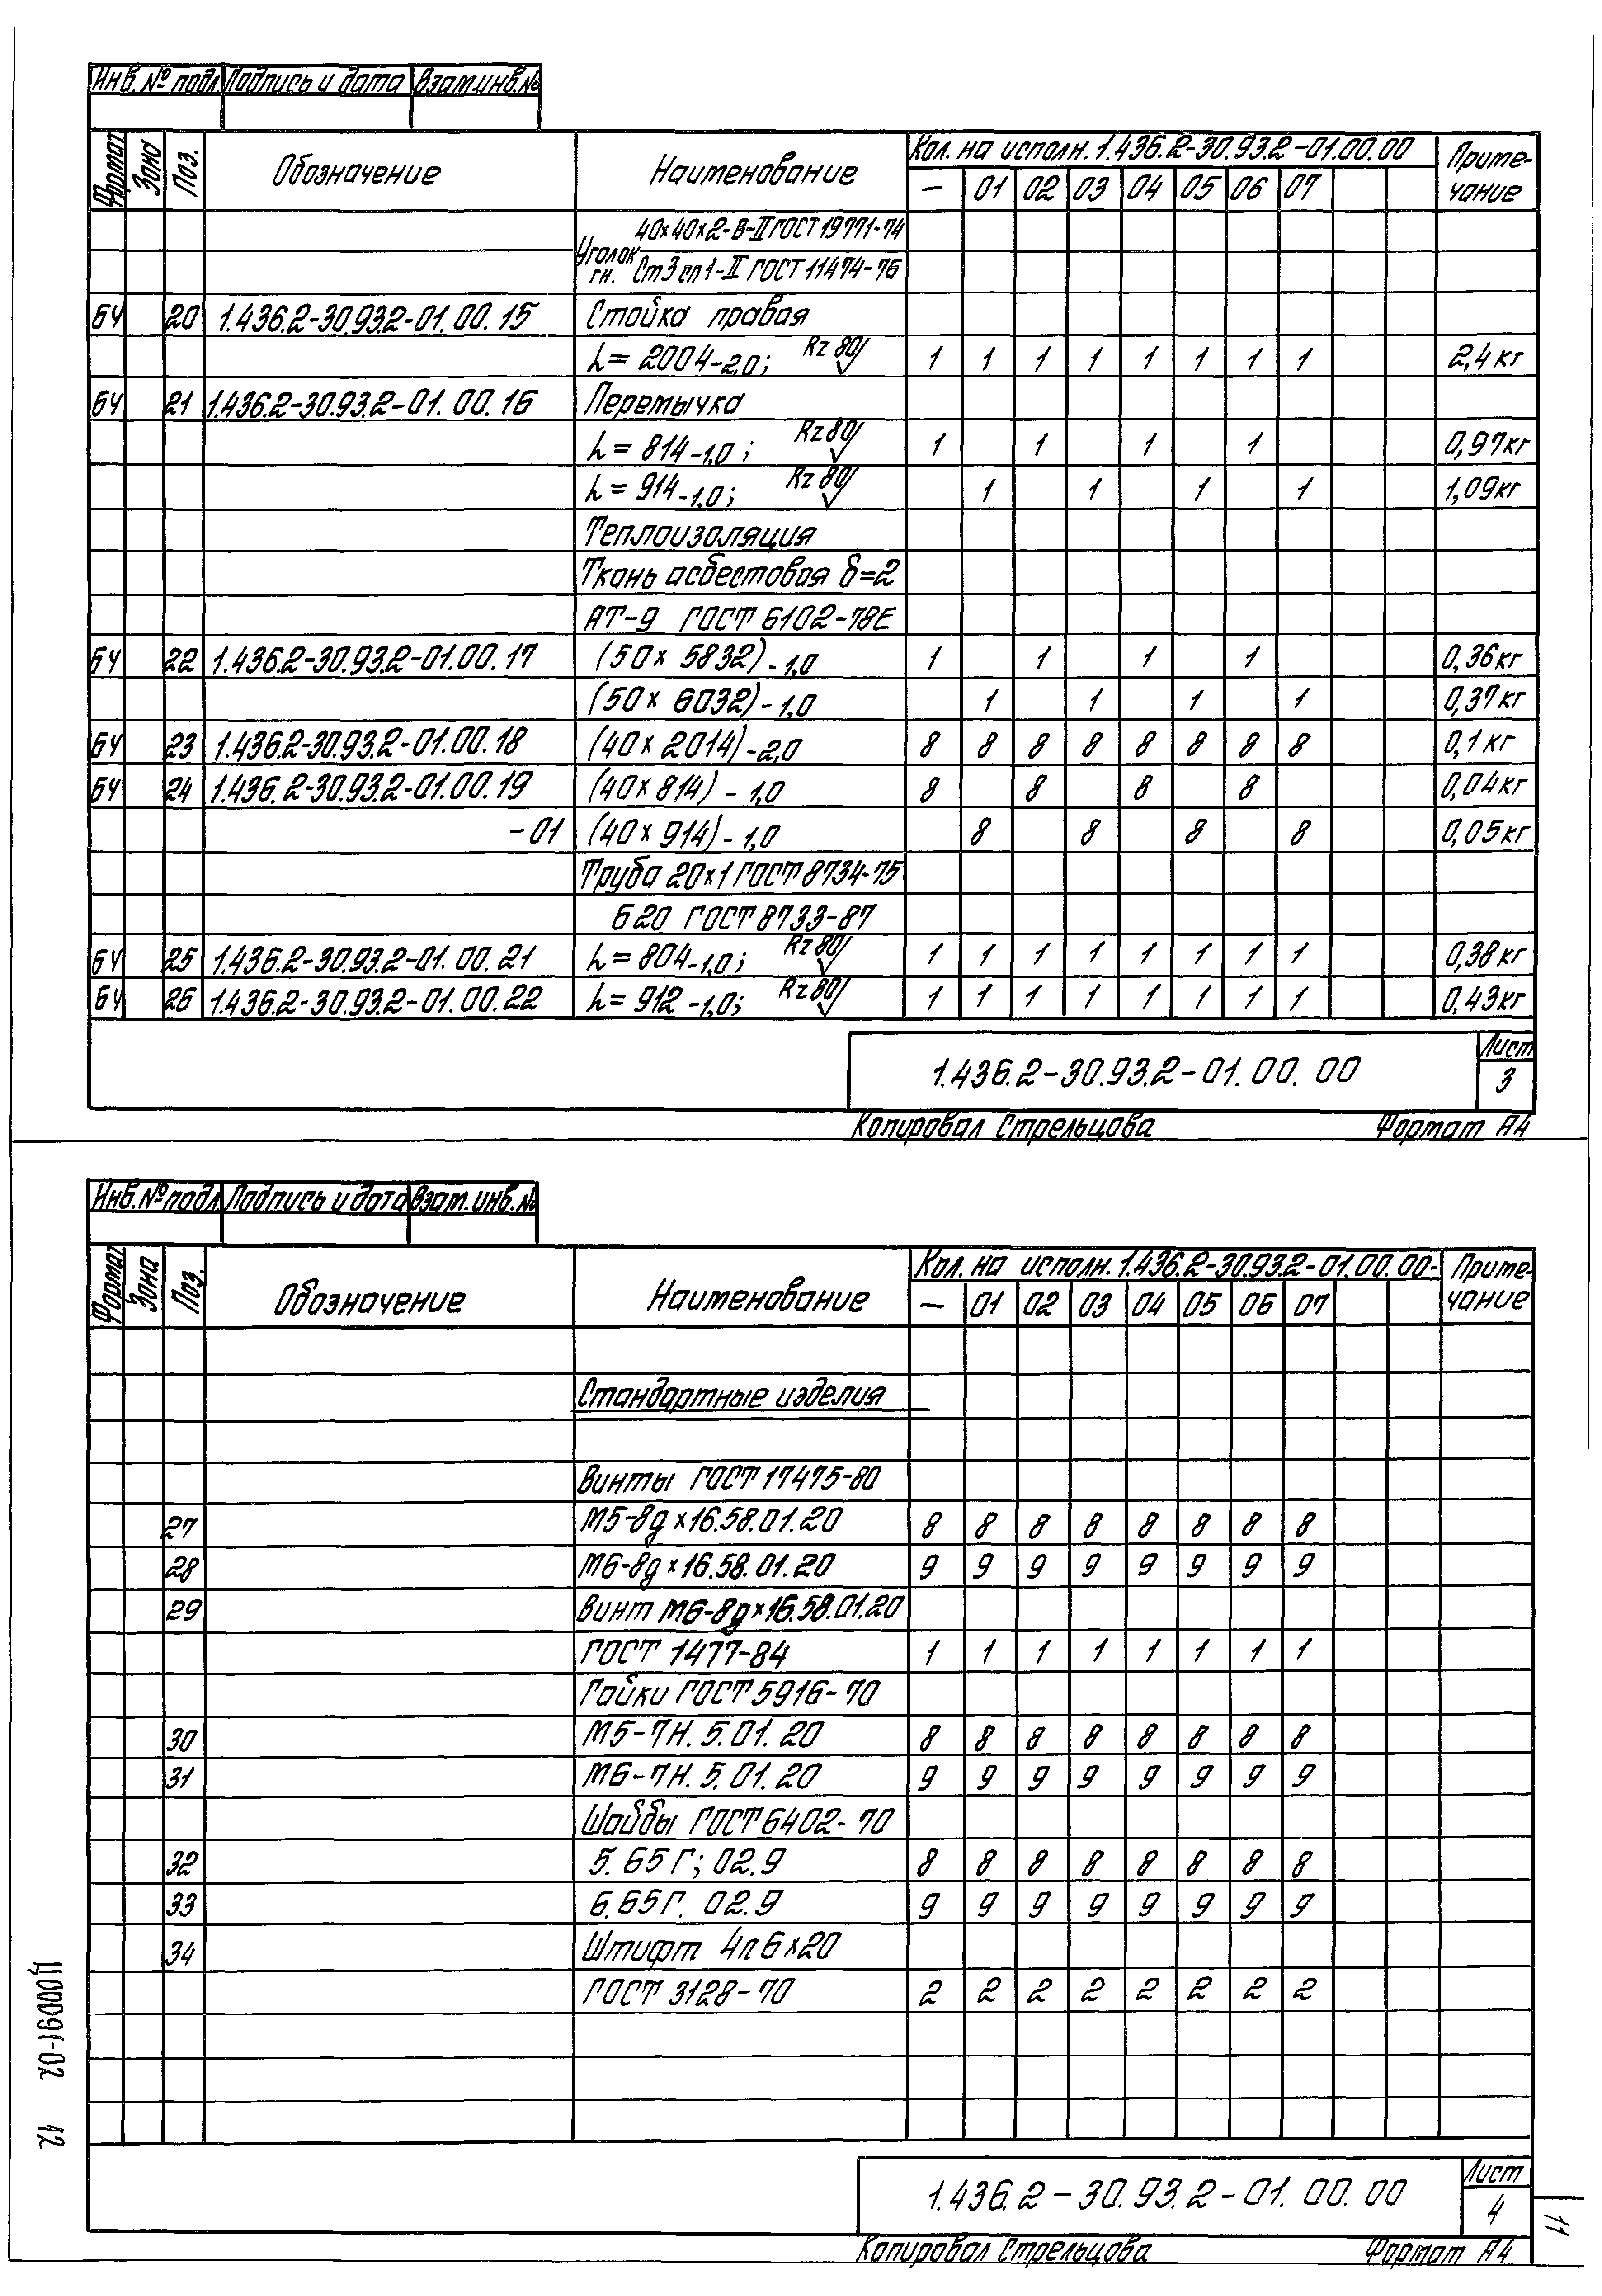 Инв. № подл. Подпись и дата Взам.инв.№
Формат Зона Поз. Обозначение Наименование Кол. на исполн. 1.436.2-30.93.2-01.00.00 Приме-
чание
— 01 02 03 04 05 06 07
40×40×2-В-II ГОСТ 19771-74
Уголок гн. Ст3сп1-II ГОСТ 11474-76
БЧ 20 1.436.2-30.93.2-01.00.15 Стойка правая
L=2004-2,0; Rz80 1 1 1 1 1 1 1 1 2,4кг
БЧ 21 1.436.2-30.93.2-01.00.16 Перемычка
L=814-1,0; Rz80 1 1 1 1 0,97кг
L=914-1,0; Rz80 1 1 1 1 1,09кг
Теплоизоляция
Ткань асбестовая δ=2
АТ-9 ГОСТ 6102-78Е
БЧ 22 1.436.2-30.93.2-01.00.17 (50×5832)-1,0 1 1 1 1 0,36кг
(50×6032)-1,0 1 1 1 1 0,37кг
БЧ 23 1.436.2-30.93.2-01.00.18 (40×2014)-2,0 8 8 8 8 8 8 8 8 0,1кг
БЧ 24 1.436.2-30.93.2-01.00.19 (40×814)-1,0 8 8 8 8 0,04кг
-01 (40×914)-1,0 8 8 8 8 0,05кг
Труба 20×1 ГОСТ 8734-75
Б20 ГОСТ 8733-87
БЧ 25 1.436.2-30.93.2-01.00.21 L=804-1,0; Rz80 1 1 1 1 1 1 1 1 0,38кг
БЧ 26 1.436.2-30.93.2-01.00.22 L=912-1,0; Rz80 1 1 1 1 1 1 1 1 0,43кг
1.436.2-30.93.2-01.00.00 Лист
3
Копировал Стрельцова Формат А4
Инв.№подл. Подпись и дата Взам.инв.№
Формат Зона Поз. Обозначение Наименование Кол. на исполн. 1.436.2-30.93.2-01.00.00- Приме-
чание
— 01 02 03 04 05 06 07
Стандартные изделия
Винты ГОСТ 17475-80
27 М5-8g×16.58.01.20 8 8 8 8 8 8 8 8
28 М6-8g×16.58.01.20 9 9 9 9 9 9 9 9
29 Винт М6-8g×16.58.01.20
ГОСТ 1477-84 1 1 1 1 1 1 1 1
Гайки ГОСТ 5916-70
30 М5-7Н.5.01.20 8 8 8 8 8 8 8 8
31 М6-7Н.5.01.20 9 9 9 9 9 9 9 9
Шайбы ГОСТ 6402-70
32 5.65Г; 02.9 8 8 8 8 8 8 8 8
33 6.65Г. 02.9 9 9 9 9 9 9 9 9
34 Штифт 4п6×20
ГОСТ 3128-70 2 2 2 2 2 2 2 2
1.436.2-30.93.2-01.00.00 Лист
4
Копировал Стрельцова Формат А4
Ц00091-02 12
11